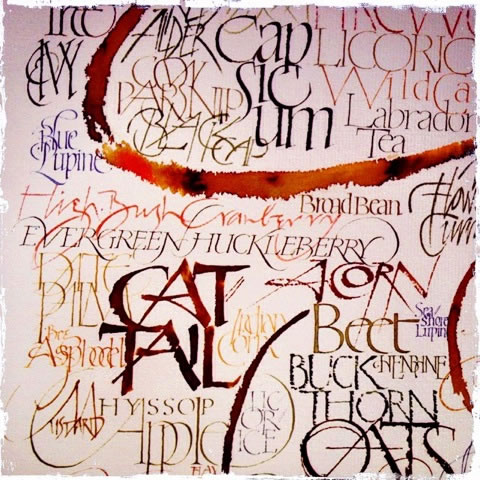 IVY
ALDER
Cap
sic
um
LICORIC
Wild Ca
Labrador
Tea
PARSNIP
Blue
Lupine
High Bush Cranberry
Broad Bean
EVERGREEN HUCKLEBERRY
CAT
TAIL
ACORN
Indian
Corn
Beet
Sea
Shore
Lupine
Bog
Asphodel
BUCK
THORN
HENBANE
MUSTARD
HYSSOP
Apple
LIC
OR
ICE
OATS